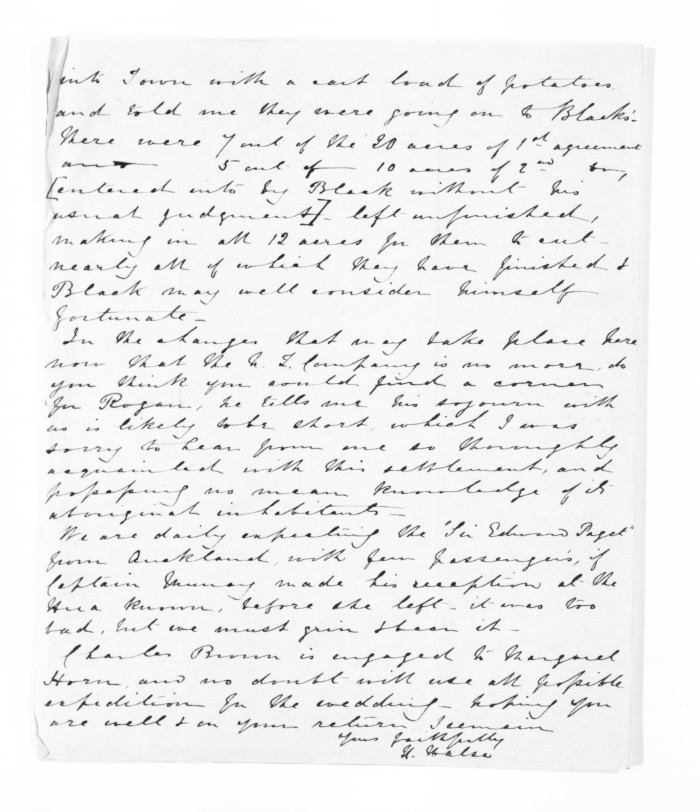 into Town with a cart load of potatoes
and told me they were going on to Black's -
There were 7 out of the 20 acres of 1st agreement
and 5 out of 10 acres of 2nd do,
[entered into by Black without his
usual judgment] - left unfinished,
making in all 12 acres for them to cut -
nearly all of which they have finished &
Black may well consider himself
fortunate -
In the changes that may take place here
now that the N. Z. Company is no more, do
you think you could find a corner
for Rogan, he tells me his sojourn with
us is likely to be short, which I was
sorry to hear from one so thoroughly
acquainted with this settlement, and
possessing no mean knowledge of its
aboriginal inhabitants -
We are daily expecting the "Sir Edward Paget"
from Auckland, with few passengers, if
Captain Murray made his reception at the
Hua known, before she left - it was too
bad, but we must grin & bear it -
Charles Brown is engaged to Margaret
Horn, and no doubt will use all possible
expedition for the wedding - hoping you
are well & on your return I remain
Yours faithfully
H. Halse